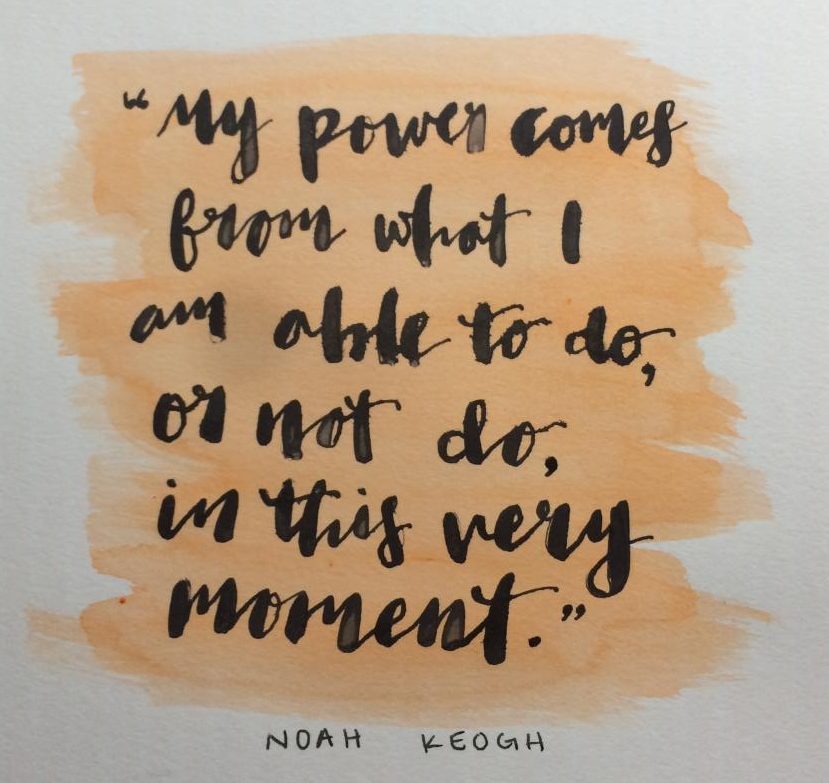 “My power comes
from what I
am able to do,
or not do,
in this very
moment.”
NOAH KEOGH